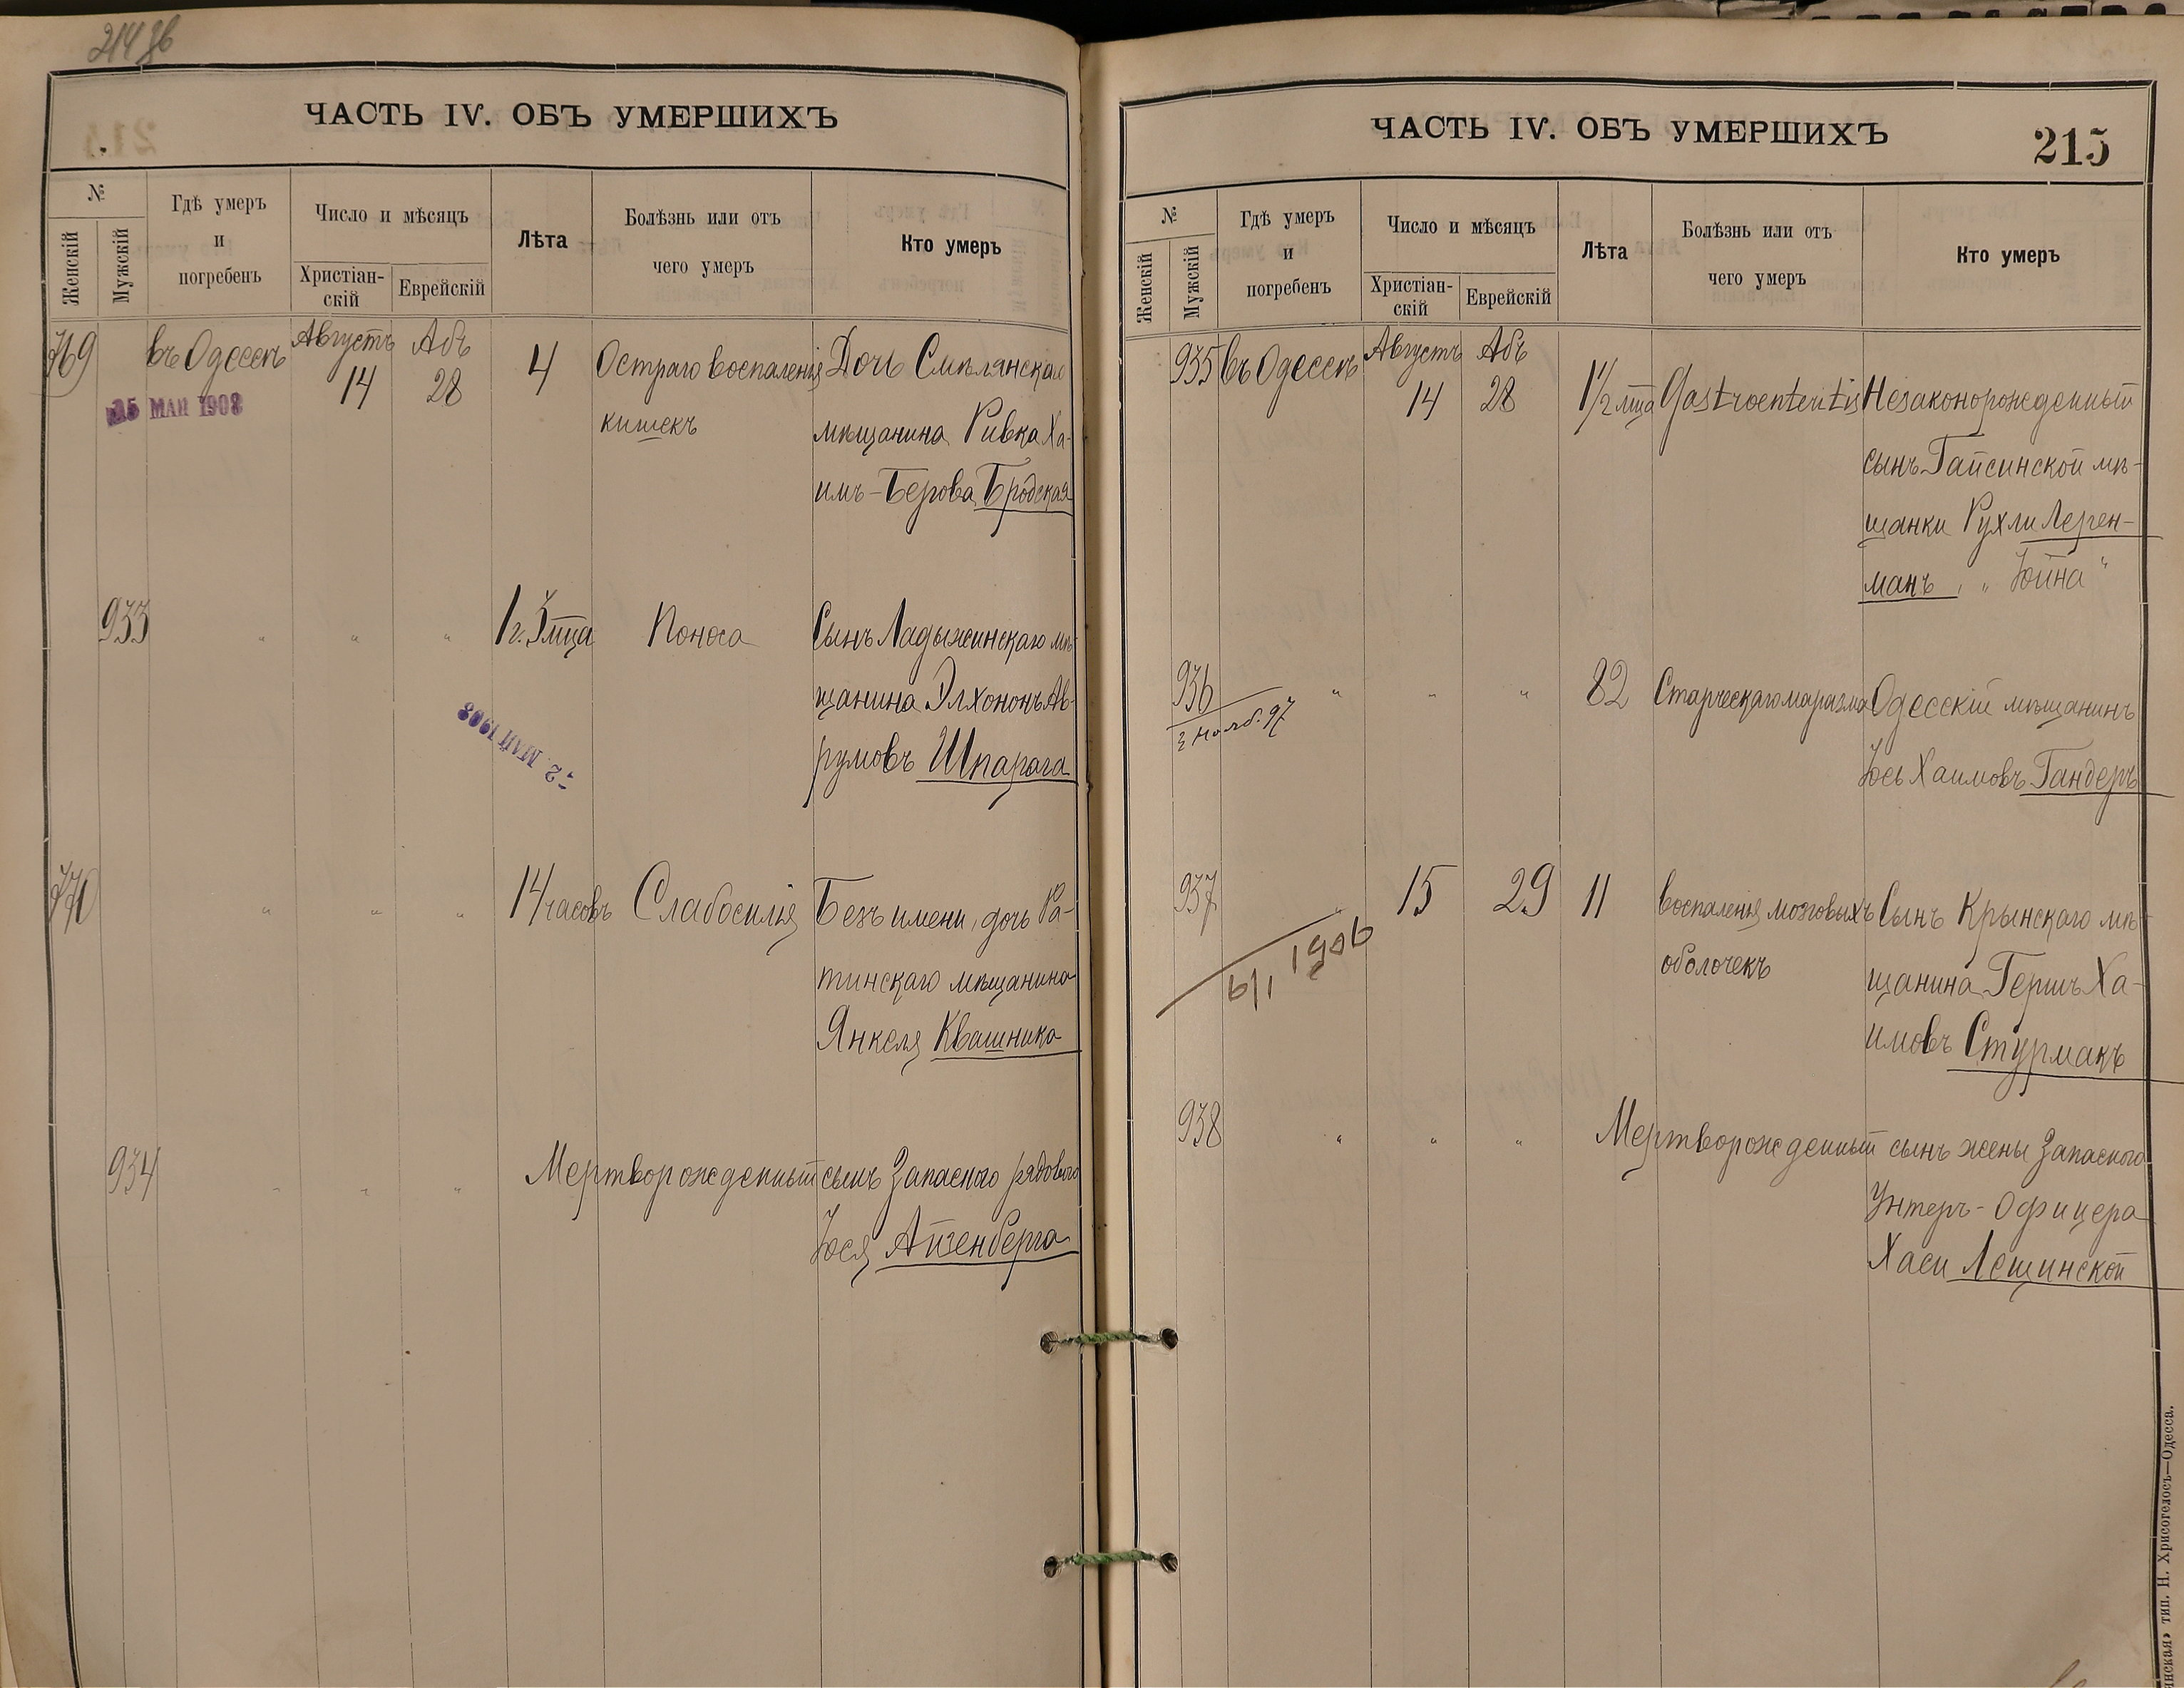 ЧАСТЬ IV. ОБЪ УМЕРШИХЪ
№
Женскій
Мужскій
Гдѣ умеръ
и
погребенъ
Число и мѣсяцъ
Христіан-
скій
Еврейскій
Лѣта
Болѣзнь или отъ
чего умеръ
Кто умеръ
769 въ Одессѣ Августъ 14 Абъ 28 4 Остраго воспаленія Дочь Смѣлянскаго
15 МАЙ 1908
кишекъ мѣщанина Ривка Ха-
имъ-Берова Бродская
933 " " " 1 г. 3 мца Поноса Сынъ Ладыжинскаго мѣ-
щанина Элхононъ Ав-
румовъ Шпарага
12. МАЙ 1908
770 " " " 14 часовъ Слабосилія Безъ имени, дочь Ра-
тинскаго мѣщанина
Янкеля Квашника
934 " " " Мертворожденный сынъ Запаснаго рядового
Іося Айзенберга
ЧАСТЬ IV. ОБЪ УМЕРШИХЪ
215
№
Женскій
Мужскій
Гдѣ умеръ
и
погребенъ
Число и мѣсяцъ
Христіан-
скій
Еврейскій
Лѣта
Болѣзнь или отъ
чего умеръ
Кто умеръ
935 въ Одессѣ Августъ 14 Абъ 28 1 1/2 мца Gastroenteritis Незаконорожденный
сынъ Гайсинской мѣ-
щанки Рухли Лерен-
манъ, „Іойна"
936 " " " 82 Старческаго маразма Одесскій мѣщанинъ
3 нояб. 97
Іось Хаимовъ Гандеръ
937 " 15 29 11 воспаленія мозговыхъ Сынъ Крынскаго мѣ-
6/I 1906
оболочекъ щанина Гершъ Ха-
имовъ Стурмакъ
938 " " " Мертворожденный сынъ жены Запаснаго
Унтеръ-Офицера
Хаси Лещинской
тип. Н. Хрисогелосъ—Одесса.